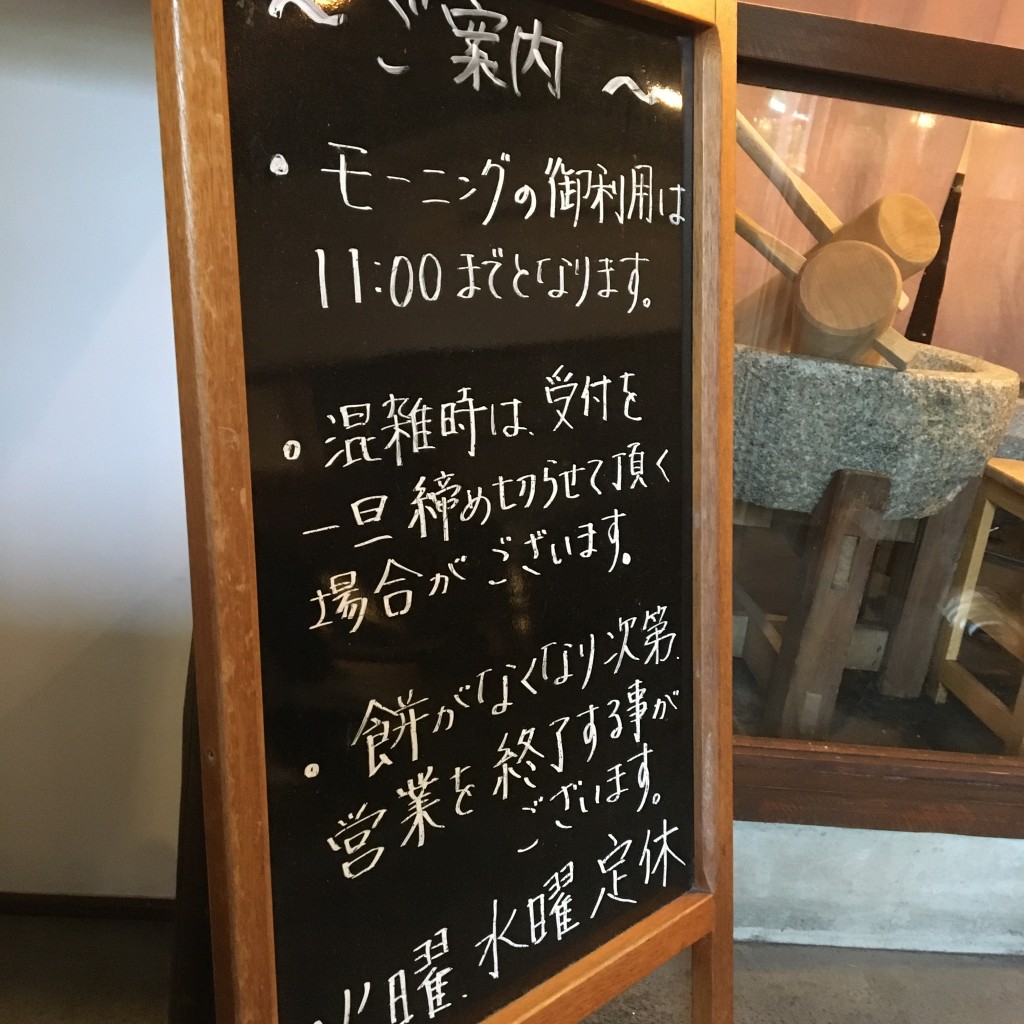 〜ご案内〜
・モーニングの御利用は
11:00までとなります。
・混雑時は、受付を
一旦締め切らせて頂く
場合がございます。
・餅がなくなり次第、
営業を終了する事が
ございます。
火曜、水曜定休